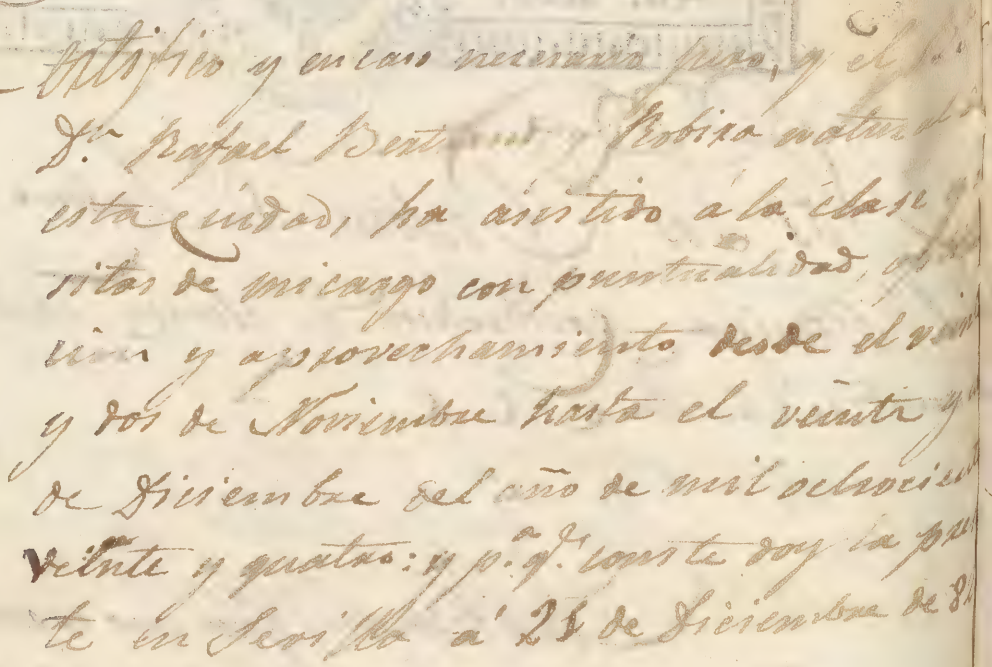 Certifico y en caso necesario juro, q el
D.n Rafael Robira natural
esta Ciudad, ha asistido á la clase
sitas de mi cargo con puntualidad,
cion y aprovechamiento desde el vein
y dos de Noviembre hasta el veinte y
de Diciembre del año de mil ochocient
veinte y quatro: y p.a q.e conste doy la pre
te en Sevilla á de Diciembre de 8